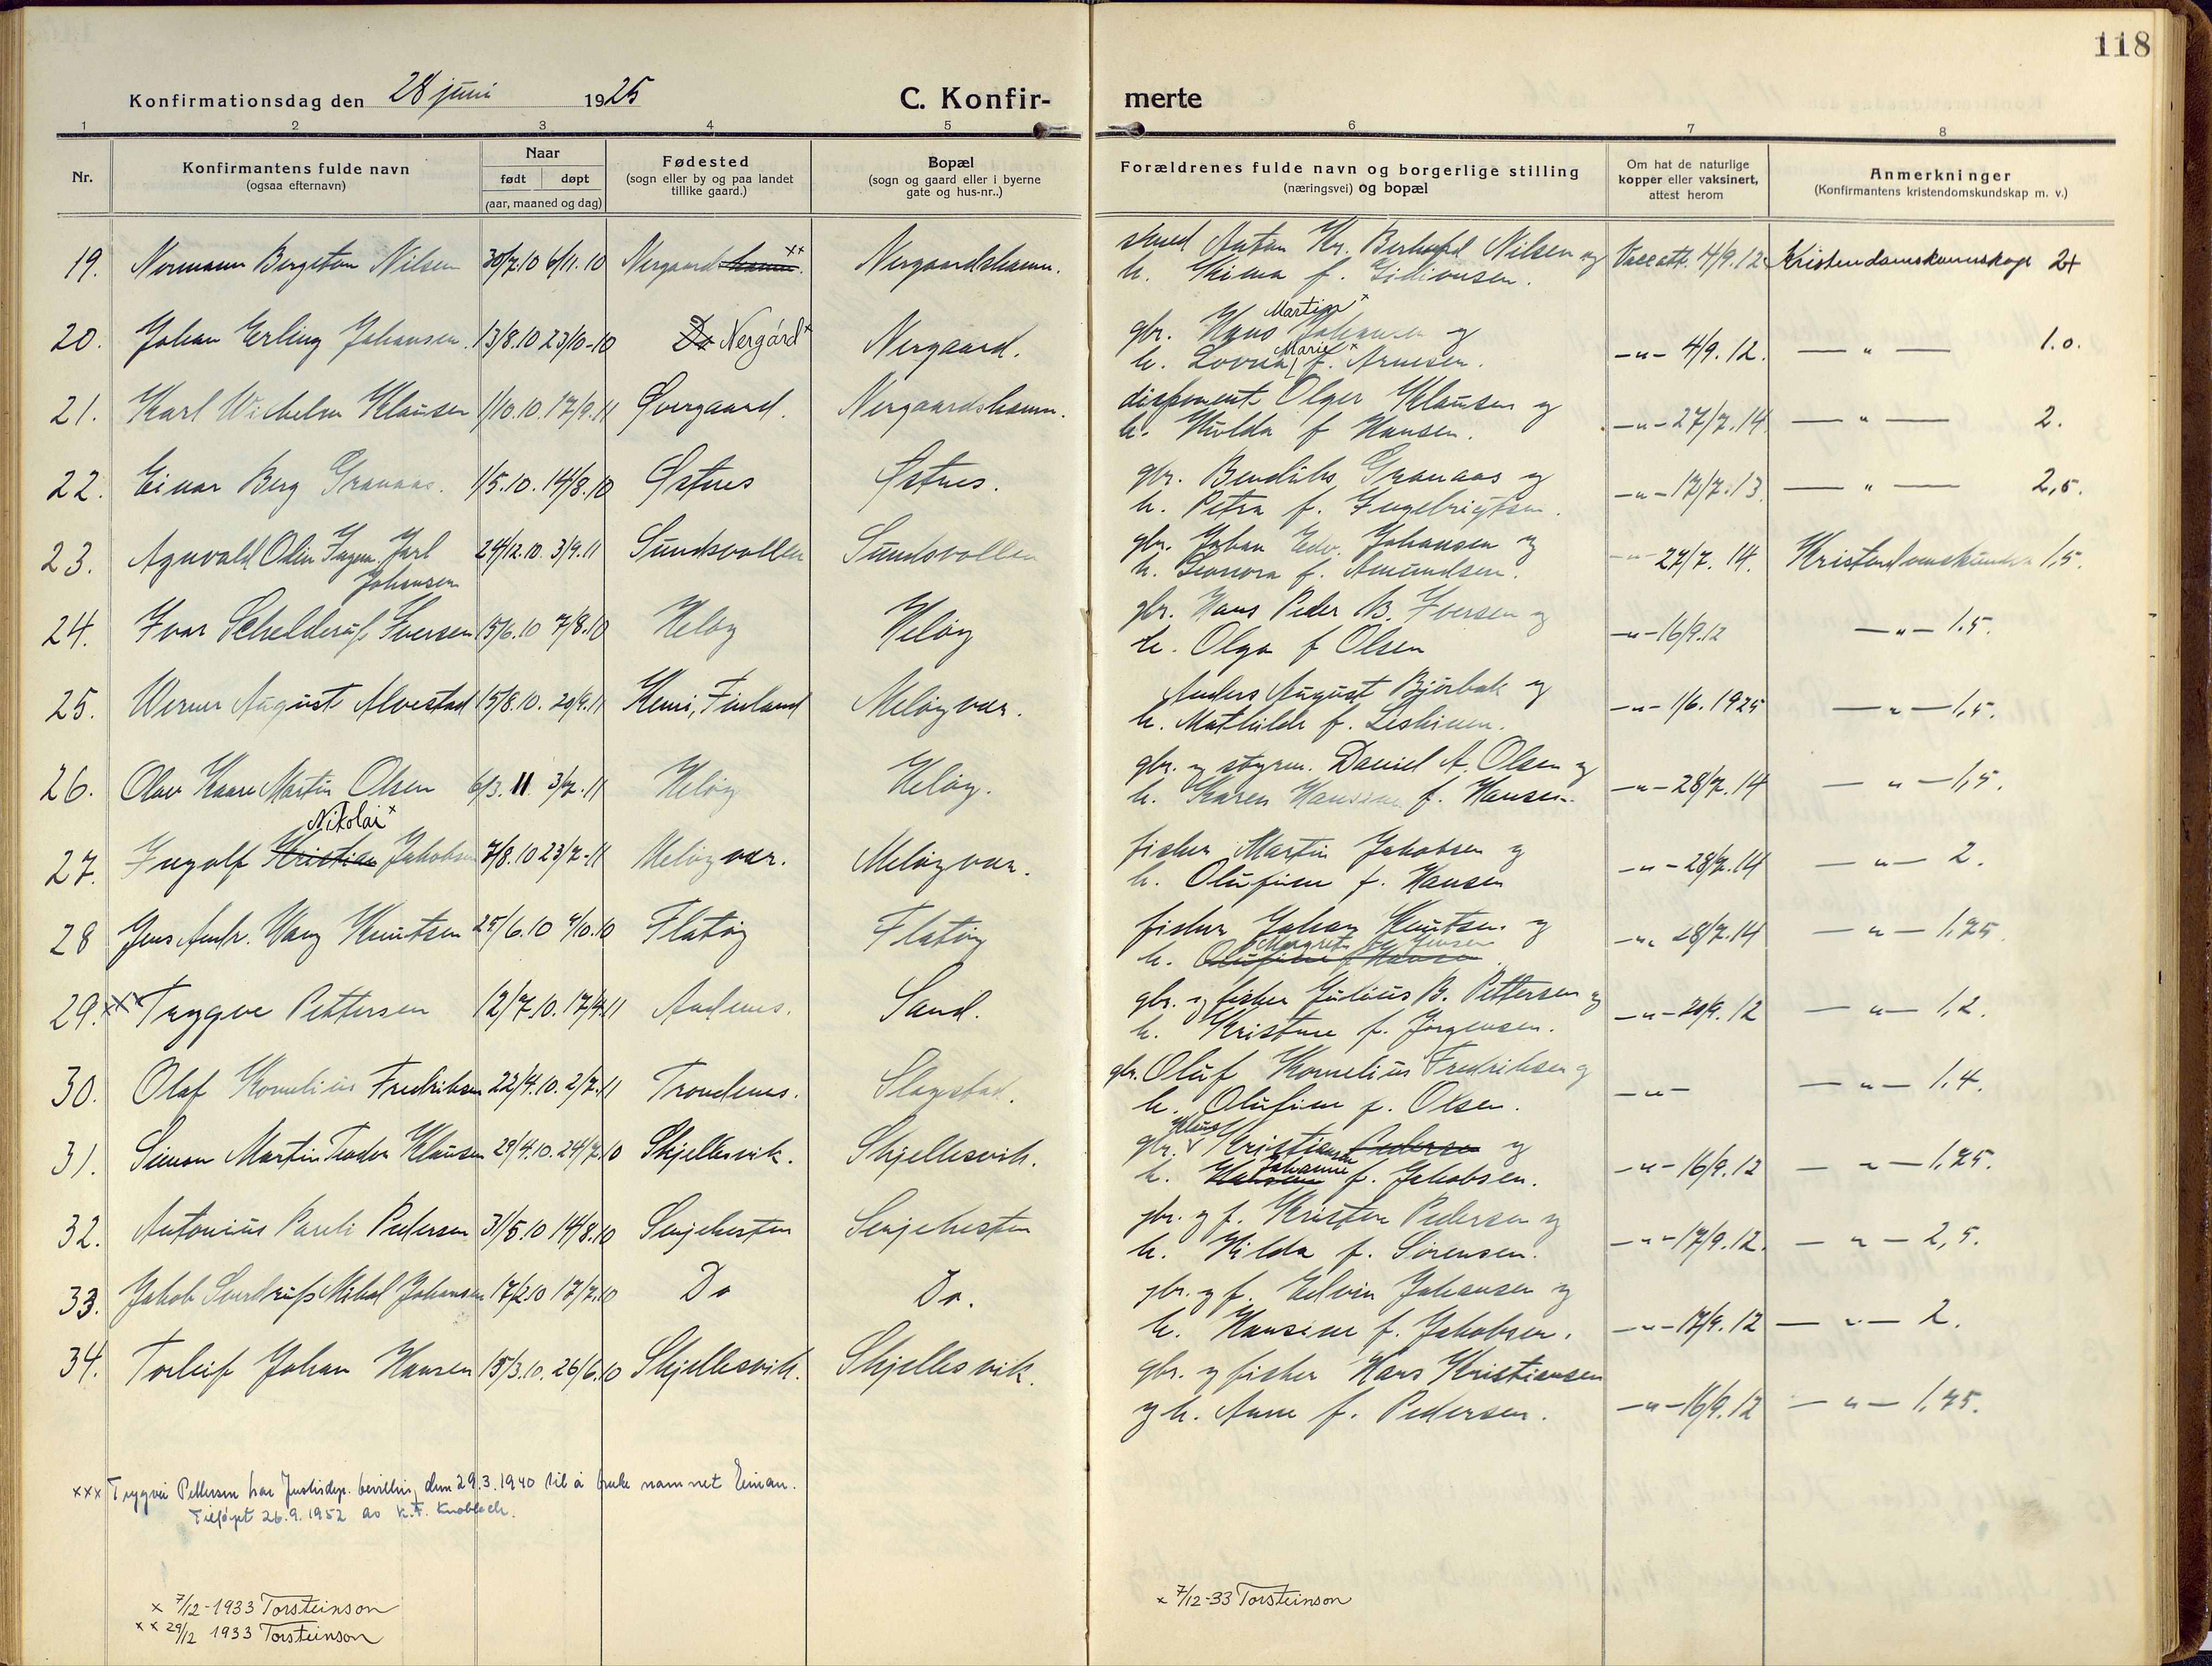 118
Konfirmationsdag den 28 juni 1925 C. Konfir-merte
1 2 3 4 5 6 7 8
Nr. Konfirmantens fulde navn (ogsaa efternavn) Naar født døpt (aar, maaned og dag) Fødested (sogn eller by og paa landet tillike gaard.) Bopæl (sogn og gaard eller i byerne gate og hus-nr..) Forældrenes fulde navn og borgerlige stilling (næringsvei) og bopæl Om hat de naturlige kopper eller vaksinert, attest herom Anmerkninger (Konfirmantens kristendomskundskap m. v.)
19. Normann Bergeton Nilsen 30/7.10 6/11.10 Nergaardshamn. xx Nergaardshamn. Anton Kr. Nilsen og Vacc att. 4/9.12 Kristendomskunnskap 2+
h. f. Gidionsen.
Martin x
20. Johan Erling Johansen. 13/8.10 23/10-10 Do Nergård x Nergaard. gbr. Hans Johansen og -"- 4/9.12. — " — 1.0.
Marie x
h. Lovna f. Arnesen.
21. Karl Wilhelm Klausen 1/10.10. 17/9.11 Øvergaard. Nergaardshamn. disponent Olger Klausen og -"- 27/7.14 — " — 2.
h. Hulda f Hansen.
22. Einar Berg Granaas. 1/5.10. 14/8.10 Østnes Østnes. gbr. Granaas og -"- 17/7.13. — " — 2,5.
h. Petra f. Ingebrigtsen.
23. Agnvald Odin Jarl 24/12.10. 3/9.11 Sundsvollen Sundsvollen gbr. Johan Edv. Johansen og -"- 27/7.14. 1,5.
Johansen
h. Leonora f. Amundsen.
24. Ivar Schelderup Iversen 15/6.10 7/8.10 Meløy Meløy gbr. Hans Peder B. Iversen og -"- 16/9.12 -"- 1.5.
h. Olga f Olsen
25. Werner August Alvestad 15/8.10. 20/9.11 Kemi, Finland Meløyvær. Anders August Bjørbak og -"- 1/6.1925 -"- 1,5.
h. Mathilde f. Leskinen.
26. Olav Kaare Martin Olsen 6/3.11 3/7.11 Meløy Meløy. gbr. og styrm. Daniel A. Olsen og -"- 28/7.14 -"- 1,5.
h. Karen Hansine f. Hansen.
Nikolai x
27. Ingolf Kristian Jakobsen 7/8.10 23/7-11 Meløyvær. Meløyvær. fisker Martin Jakobsen og -"- 28/7.14 -"- 2.
h. Olufine f. Hansen
28 Jens Andr. Wang Knutsen 25/6.10 9/10.10 Flatøy Flatøy fisker Johan Knutsen og -"- 28/7.14 -"- 1,75.
Margrete f. Jensen
h. Olufine f Hansen
29. xxx Trygve Pettersen 12/7.10. 17/4.11 Andenes. Sand. gbr. og fisker Julius B. Pettersen og -"- 20/9.12 -"- 1,2.
h. Kristine f. Jørgensen.
30. Olaf Kornelius Fredriksen 22/4.10. 2/7.11 Trondenes. Slagstad. gbr. Oluf Kornelius Fredriksen og -"- -"- 1,4.
h. Olufine f. Olsen.
Klaus
31. Simon Martin Teodor Klausen 29/4.10. 24/7.10 Skjellesvik. Skjellesvik. gbr. Kristian Pedersen og -"- 16/9.12 -"- 1,75.
Johanne
h. f. Jakobsen.
32. Antonius Pareli Pedersen 31/5.10 14/8.10 Senjehesten Senjehesten gbr. og f. Kristen Pedersen og -"- 17/9.12. -"- 2,5.
h. Hilda f. Sørensen.
33. Jakob Sverdrup Mikal Johansen 17/2.10 17/7.10 Do Do. gbr. og f. Edvin Johansen og -"- 17/9.12 -"- 2.
h. Hansine f. Jakobsen.
34. Torleif Johan Hansen 15/3.10. 26/6.10 Skjellesvik. Skjellesvik. gbr. og fisker Hans Kristiansen -"- 16/9.12 -"- 1.75.
og h. Anne f. Pedersen.
xxx Trygve Pettersen har Justisdep. bevilling dem 29.3.1940 til å bruke namnet Einan.
Tilføyet 26.9.1952 as K.F. Knobloch.
x 7/12-1933 Torsteinson
xx 29/12 1933 Torsteinson
x 7/12-33 Torsteinson